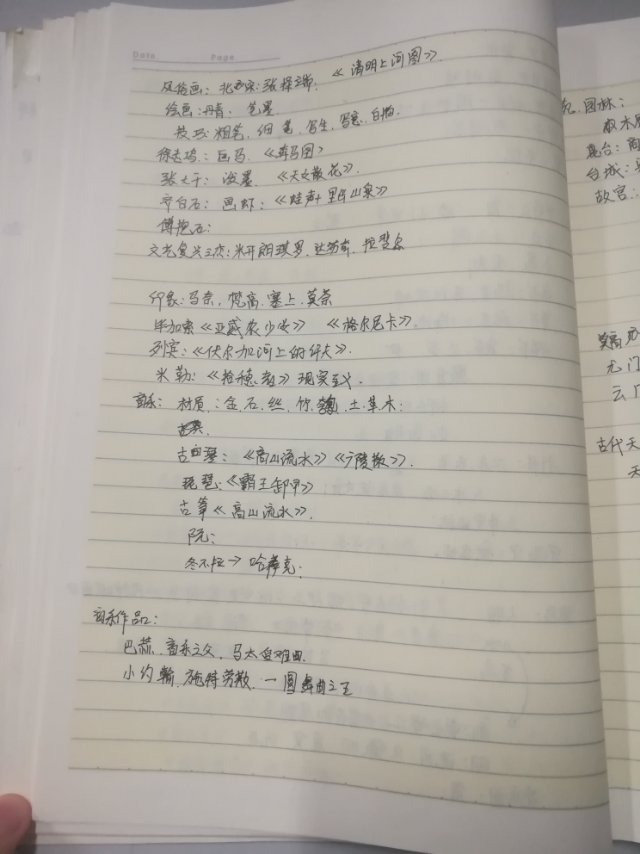 Date Page
风俗画：北宋：张择端．《清明上河图》
绘画：丹青、笔墨
技巧：粗笔、细笔、写生、写意、白描
徐悲鸿：画马．《奔马图》
张大千：泼墨．《天女散花》
齐白石：画虾：《蛙声十里出山泉》
傅抱石：
文艺复兴三杰：米开朗琪罗、达芬奇、拉斐尔
印象：马奈、梵高、塞上、莫奈
毕加索《亚威农少女》 《格尔尼卡》
列宾：《伏尔加河上的纤夫》．
米勒：《拾穗者》现实主义．
音乐：材质：金、石、丝、竹、匏、土、革、木：
古琴：《高山流水》《广陵散》．
琵琶：《霸王卸甲》
古筝《高山流水》．
阮：
冬不拉→哈萨克．
音乐作品：
巴赫、音乐之父、马太受难曲．
小约翰．施特劳斯．一圆舞曲之王
园林：
故宫
龙门
云
古代天